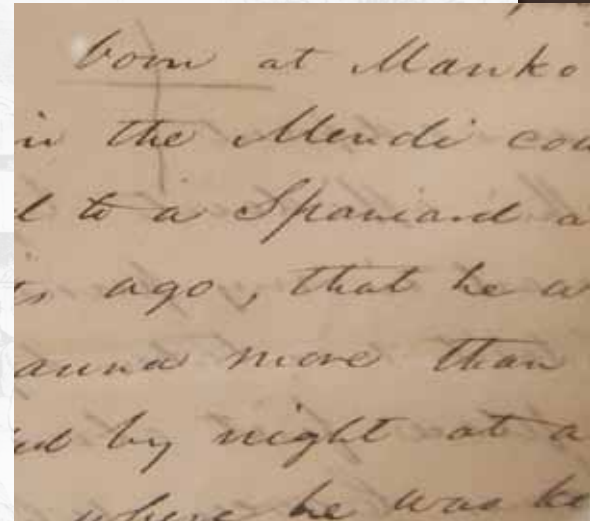 born at Manko
in the Mendi cou
d to a Spaniard a
ago, that he w
anna more than
ed by night at a
where he was ke